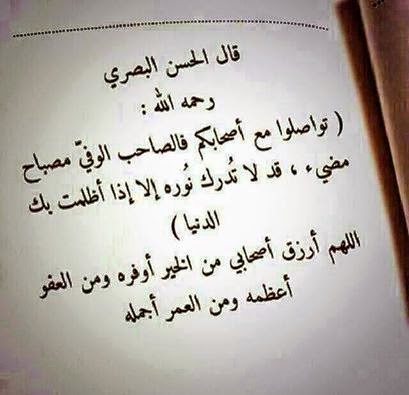 قال الحسن البصري
رحمه الله :
( تواصلوا مع أصحابكم فالصاحب الوفيّ مصباح
مضيء ، قد لا تُدرك نُوره إلا إذا أظلمت بك
الدنيا )
اللهم أرزق أصحابي من الخير أوفره ومن العفو
أعظمه ومن العمر أجمله